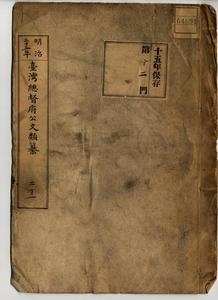 明治
三十一年
臺灣總督府公文類纂
二ノ一
十五年保存
第十二門